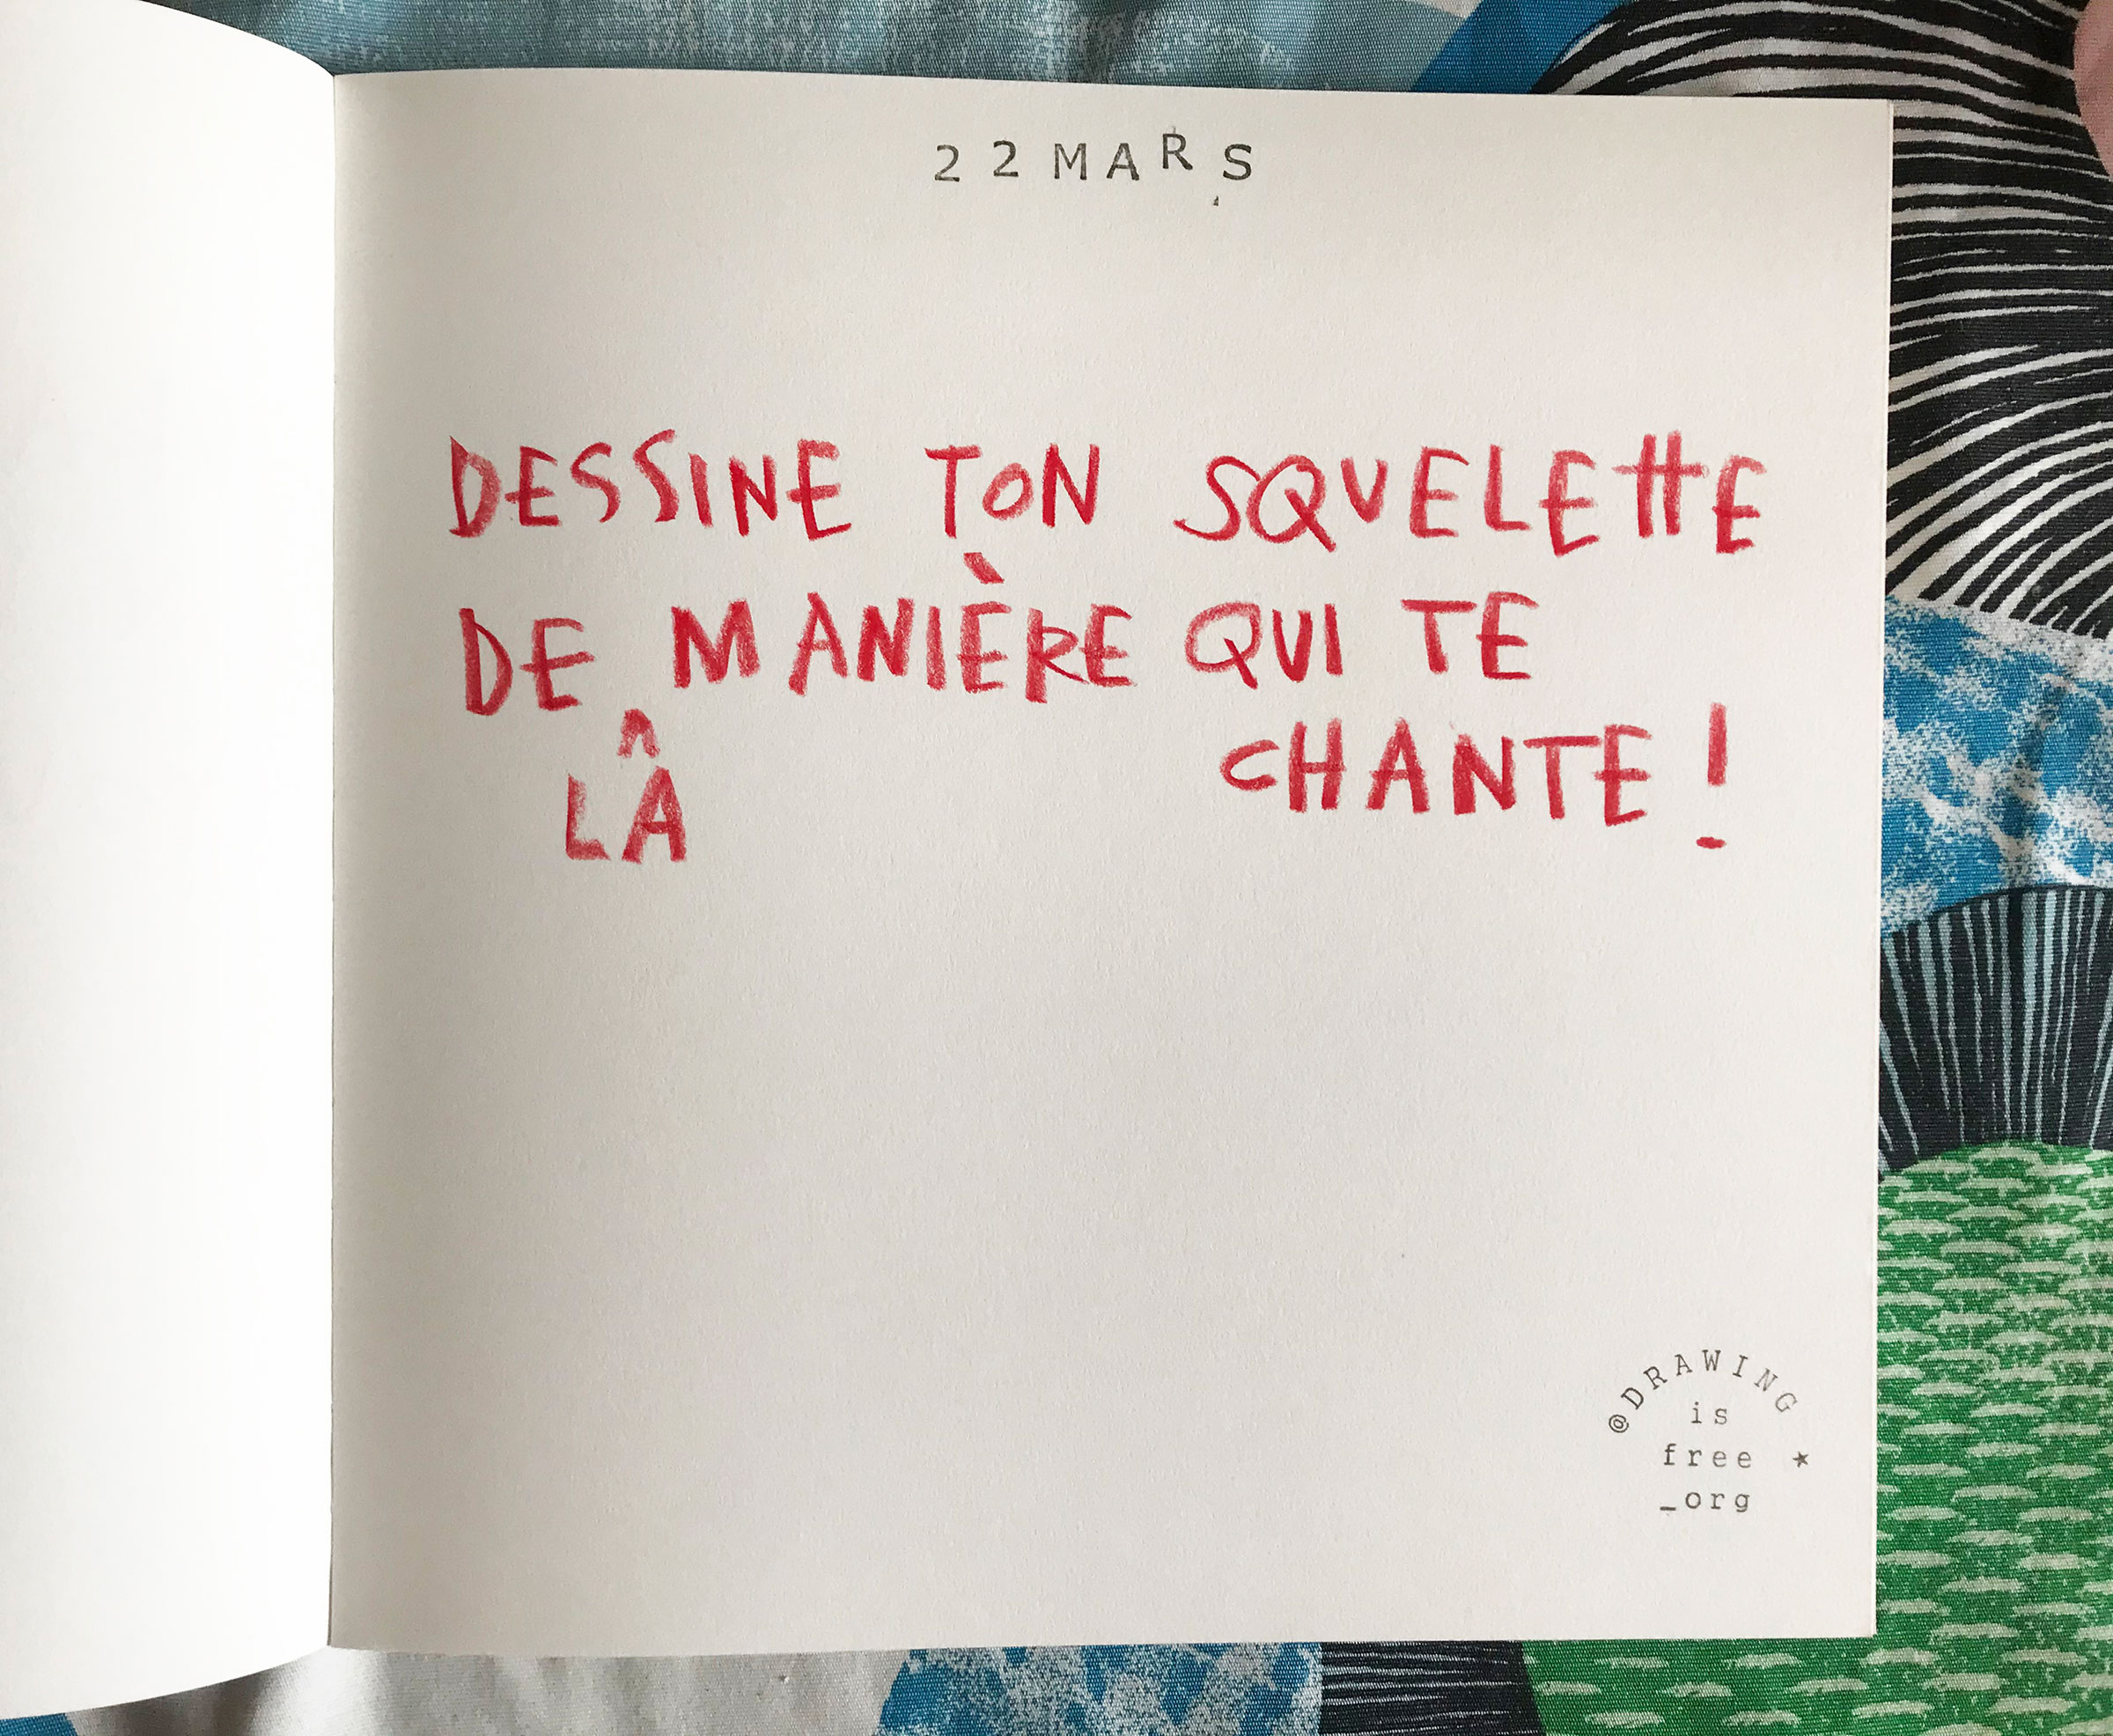 22 MARS
DESSINE TON SQUELETTE
DE MANIÈRE QUI TE
^
LA
CHANTE !
@DRAWING
is
free ★
_org